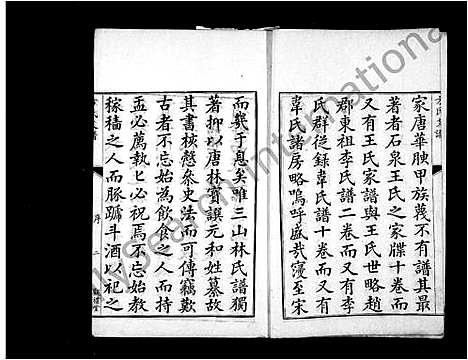 家唐華腴甲族蔑不有譜其最
著者石泉王氏之家牒十卷而
又有王氏家譜與王氏世略趙
郡東祖李氏譜二卷而又有李
氏群從錄韋氏譜十卷而又有
韋氏諸房略嗚呼盛哉寖至宋
而幾于息矣唯三山林氏譜獨
著抑以唐林寶譔元和姓纂故
其書核懸叅史法而可傳竊歎
古者不忘始為飲食之人而持
盂必薦執匕必祝焉不忘始教
稼穡之人而豚蹢斗酒以祀之
序 二